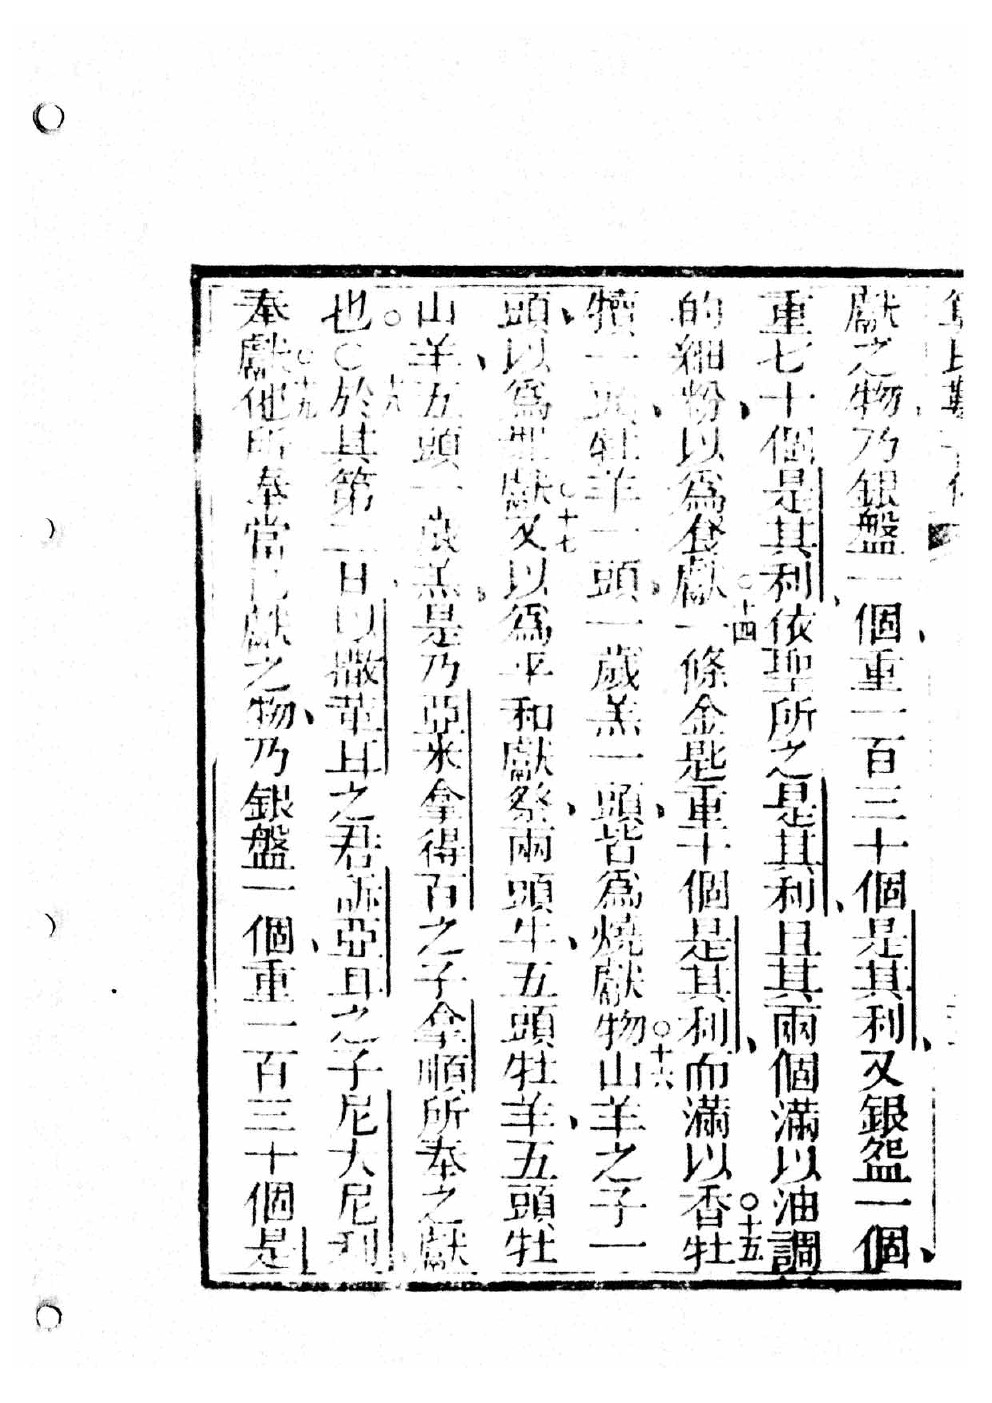 獻之物乃銀盤一個、重一百三十個是其利、又銀盌一個、
重七十個是其利、依聖所之是其利、且其兩個滿以油調
的細粉、以爲食獻○十四一條金匙重十個是其利、而滿以香○十五牡
犢一頭、牡羊一頭、一歲羔一頭、皆爲燒獻物○十六山羊之子一
頭、以爲罪獻○十七又以爲平和獻祭、兩頭牛、五頭牡羊、五頭牡
山羊、五頭一歲羔、是乃亞米拿得百之子拿順所奉之獻
也○十八○於其第二日、以撒革耳之君訴亞耳之子尼大尼利
奉獻○十九他所奉當門獻之物、乃銀盤一個、重一百三十個是